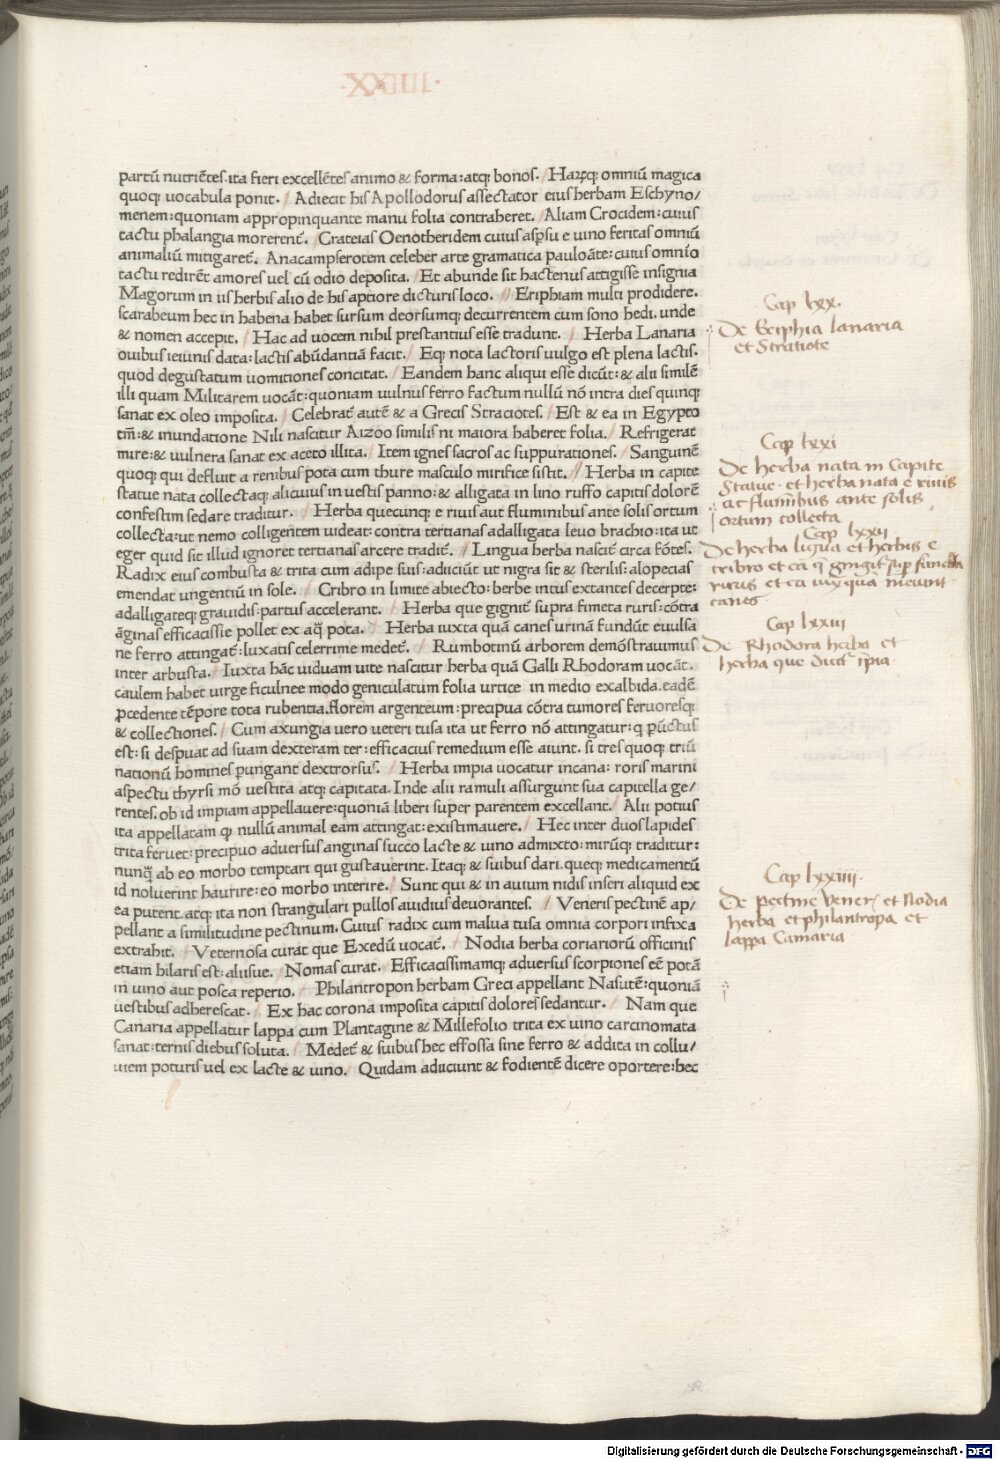 ·XXIIII·
partū nutriētes. ita fieri excellētes animo & forma: atq; bonos. Haꝝq; omniū magica
quoq; uocabula ponit. Adiecit his Apollodorus assectator eius herbam Eschyno/
menem: quoniam appropinquante manu folia contraheret. Aliam Crocidem: cuius
tactu phalangia morerent̄. Crateias Oenotheridem cuius aspsu e uino feritas omniū
animaliū mitigaret̄. Anacampserotem celeber arte gramatica pauloāte: cuius omnīo
tactu redirēt amores uel cū odio deposita. Et abunde sit hactenus attigisse insignia
Magorum in iis herbis alio de his aptiore dicturis loco. Eriphiam multi prodidere.
scarabeum hec in habena habet sursum deorsumq; decurrentem cum sono hedi. unde
& nomen accepit. Hac ad uocem nihil prestantius esse tradunt. Herba Lanaria
ouibus ieiunis data: lactis abūdantiā facit. Eq; nota lactoris uulgo est plena lactis.
quod degustatum uomitiones concitat. Eandem hanc aliqui esse dicūt: & alii similē
illi quam Militarem uocāt: quoniam uulnus ferro factum nullū nō intra dies quinq;
sanat ex oleo imposita. Celebrat̄ autē & a Grecis Straciotes. Est & ea in Egypto
tm̄: & inundatione Nili nascitur Aizoo similis ni maiora haberet folia. Refrigerat
mire: & uulnera sanat ex aceto illita. Item ignes sacros ac suppurationes. Sanguinē
quoq; qui defluit a renibus pota cum thure masculo mirifice sistit. Herba in capite
statue nata collectaq; alicuius in uestis panno: & alligata in lino ruffo capitis dolorē
confestim sedare traditur. Herba quecunq; e riuis aut fluminibus ante solis ortum
collecta: ut nemo colligentem uideat: contra tertianas adalligata leuo brachio: ita ut
eger quid sit illud ignoret tertianas arcere tradit̄. Lingua herba nascit̄ circa fōtes.
Radix eius combusta & trita cum adipe suis: adiiciūt ut nigra sit & sterilis: alopecias
emendat ungentiū in sole. Cribro in limite abiecto: herbe intus extantes decerpte:
adalligateq; grauidis: partus accelerant. Herba que gignit̄ supra fimeta ruris: cōtra
āginas efficacissie pollet ex aq̄ pota. Herba iuxta quā canes urinā fundūt euulsa
ne ferro attingat̄: luxatis celerrime medet̄. Rumbotinū arborem demōstrauimus
inter arbusta. Iuxta hāc uiduam uite nascitur herba quā Galli Rhodoram uocāt.
caulem habet uirge ficulnee modo geniculatum folia urtice in medio exalbida. eadē
ꝓcedente tēpore tota rubentia. florem argenteum: precipua cōtra tumores feruoresq;
& collectiones. Cum axungia uero ueteri tusa ita ut ferro nō attingatur: q pūctus
est: si despuat ad suam dexteram ter: efficacius remedium esse aiunt. si tres quoq; triū
nationū homines pungant dextrorsus. Herba impia uocatur incana: roris marini
aspectu thyrsi mō uestita atq; capitata. Inde alii ramuli assurgunt sua capitella ge/
rentes. ob id impiam appellauere: quoniā liberi super parentem excellant. Alii potius
ita appellatam ꝙ nullū animal eam attingat: existimauere. Hec inter duos lapides
trita feruet: precipuo aduersus anginas succo lacte & uino admixto: mirūq; traditur:
nunq̄ ab eo morbo temptari qui gustauerint. Itaq; & suibus dari. queq; medicamentū
id noluerint haurire: eo morbo interire. Sunt qui & in auium nidis inseri aliquid ex
ea putent. atq; ita non strangulari pullos auidius deuorantes. Veneris pectinē ap/
pellant a similitudine pectinum. Cuius radix cum malua tusa omnia corpori infixa
extrahit. Veternosa curat que Exedū uocat̄. Nodia herba coriariorū officinis
etiam hilaris est: aliisue. Nomas curat. Efficacissimamq; aduersus scorpiones eē potā
in uino aut posca reperio. Philantropon herbam Greci appellant Nasutē: quoniā
uestibus adherescat. Ex hac corona imposita capitis dolores sedantur. Nam que
Canaria appellatur lappa cum Plantagine & Millefolio trita ex uino carcinomata
sanat: ternis diebus soluta. Medet̄ & suibus hec effossa sine ferro & addita in collu/
uiem poturis uel ex lacte & uino. Quidam adiiciunt & fodientē dicere oportere: hec
Cap lxx.
De Eriphia lanaria
et Stratiote
Cap lxxi
De herba nata in Capite
Statue· et herba nata e riuis
ac fluminibus ante solis
ortum collecta
Cap lxxii
De herba lingua et herbis e
cribro et ea q̄ gignit̄ sup fimeta
ruris et ea iuxta quā
canes
Cap lxxiii
De Rhodora herba et
herba que dicit̄ īpia
Cap lxxiiii.
De pectine Vener; et Nodia
herba et philantropa et
lappa Canaria
Digitalisierung gefördert durch die Deutsche Forschungsgemeinschaft - DFG